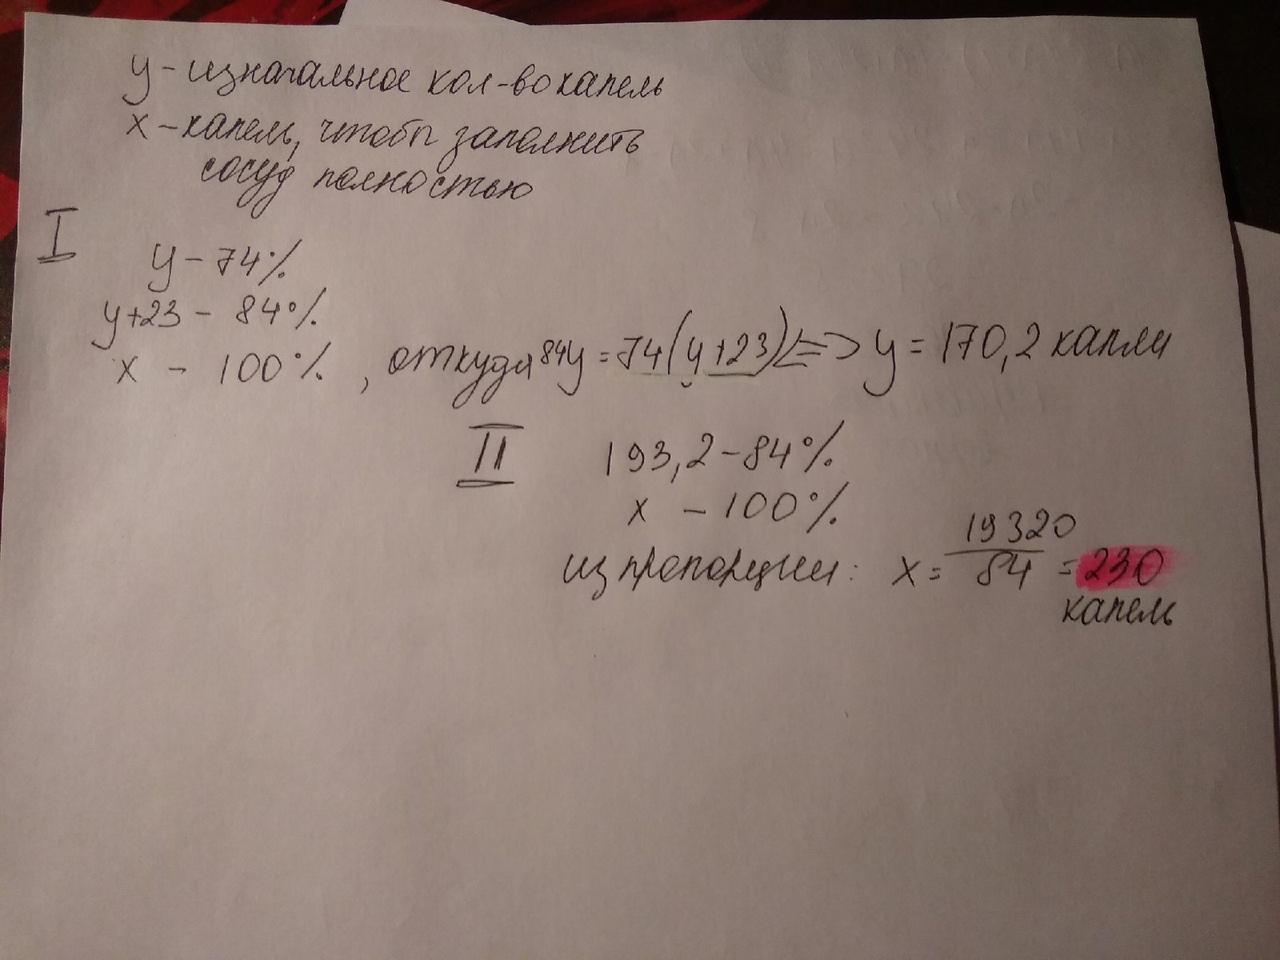 y - изначальное кол-во капель
x - капель, чтобы заполнить
сосуд полностью
I
y - 74%
y+23 - 84%
x - 100%, откуда 84y = 74(y+23) <=> y = 170,2 капли
II
193,2 - 84%
x - 100%
из пропорции: x = 19320/84 = 230
капель